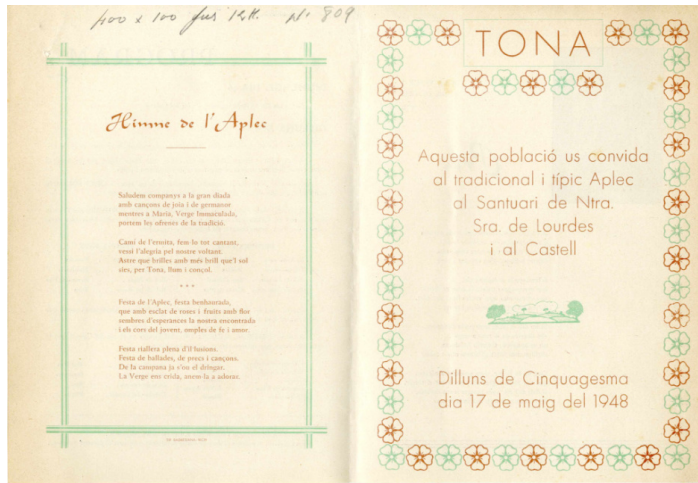 400 x 100
Himne de l'Aplec
Saludem companys a la gran diada
amb cançons de joia i de germanor
mentres a Maria, Verge Immaculada,
portem les ofrenes de la tradició.
Camí de l'ermita, fem-lo tot cantant,
vessi l'alegria pel nostre voltant.
Astre que brilles amb més brill que'l sol
sies, per Tona, llum i conçol.
* * *
Festa de l'Aplec, festa benhaurada,
que amb esclat de roses i fruits amb flor
sembres d'esperances la nostra encontrada
i els cors del jovent, omples de fe i amor.
Festa riallera plena d'il·lusions.
Festa de ballades, de precs i cançons.
De la campana ja s'ou el dringar.
La Verge ens crida, anem-la a adorar.
TONA
Aquesta població us convida
al tradicional i típic Aplec
al Santuari de Ntra.
Sra. de Lourdes
i al Castell
Dilluns de Cinquagesma
dia 17 de maig del 1948